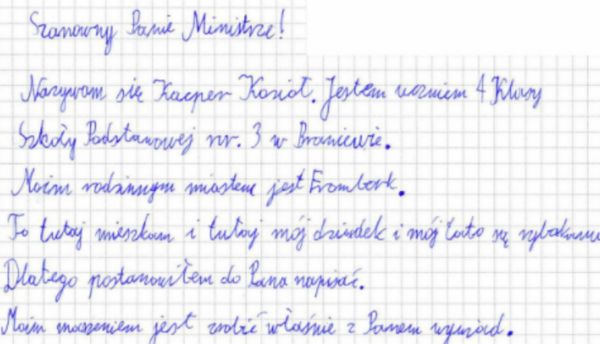 Szanowny Panie Ministrze!
Nazywam się Kacper Kozioł. Jestem uczniem 4 Klasy
Szkoły Podstawowej nr. 3 w Braniewie.
Moim rodzinnym miastem jest Frombork.
To tutaj mieszkam i tutaj mój dziadek i mój tato są rybakami
Dlatego postanowiłem do Pana napisać.
Moim marzeniem jest zrobić właśnie z Panem wywiad.